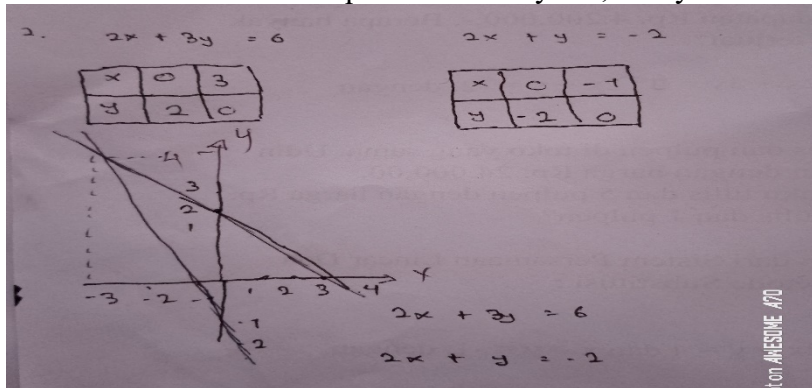 2. 2x + 3y = 6 2x + y = -2
x 0 3 x 0 -1
y 2 0 y -2 0
y
-4
3
2
1
x
-3 -2 - 1 2 3 4
-1
-2
2x + 3y = 6
2x + y = -2
ton AWESOME A70